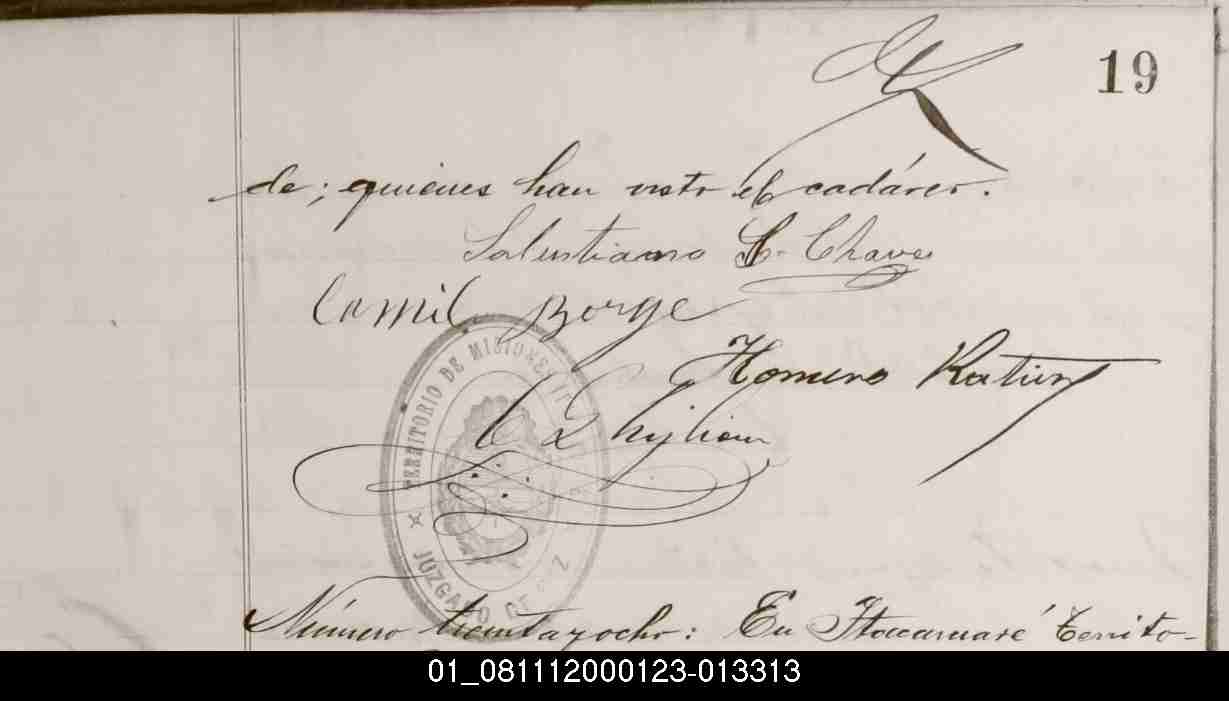 19
de; quienes han visto el cadáver.
Salustiano S. Chaves
Camil Borge
Homero
TERRITORIO DE MISIONES
JUZGADO DE
Número treintayocho: En Itacaruaré Territo-
01_081112000123-013313